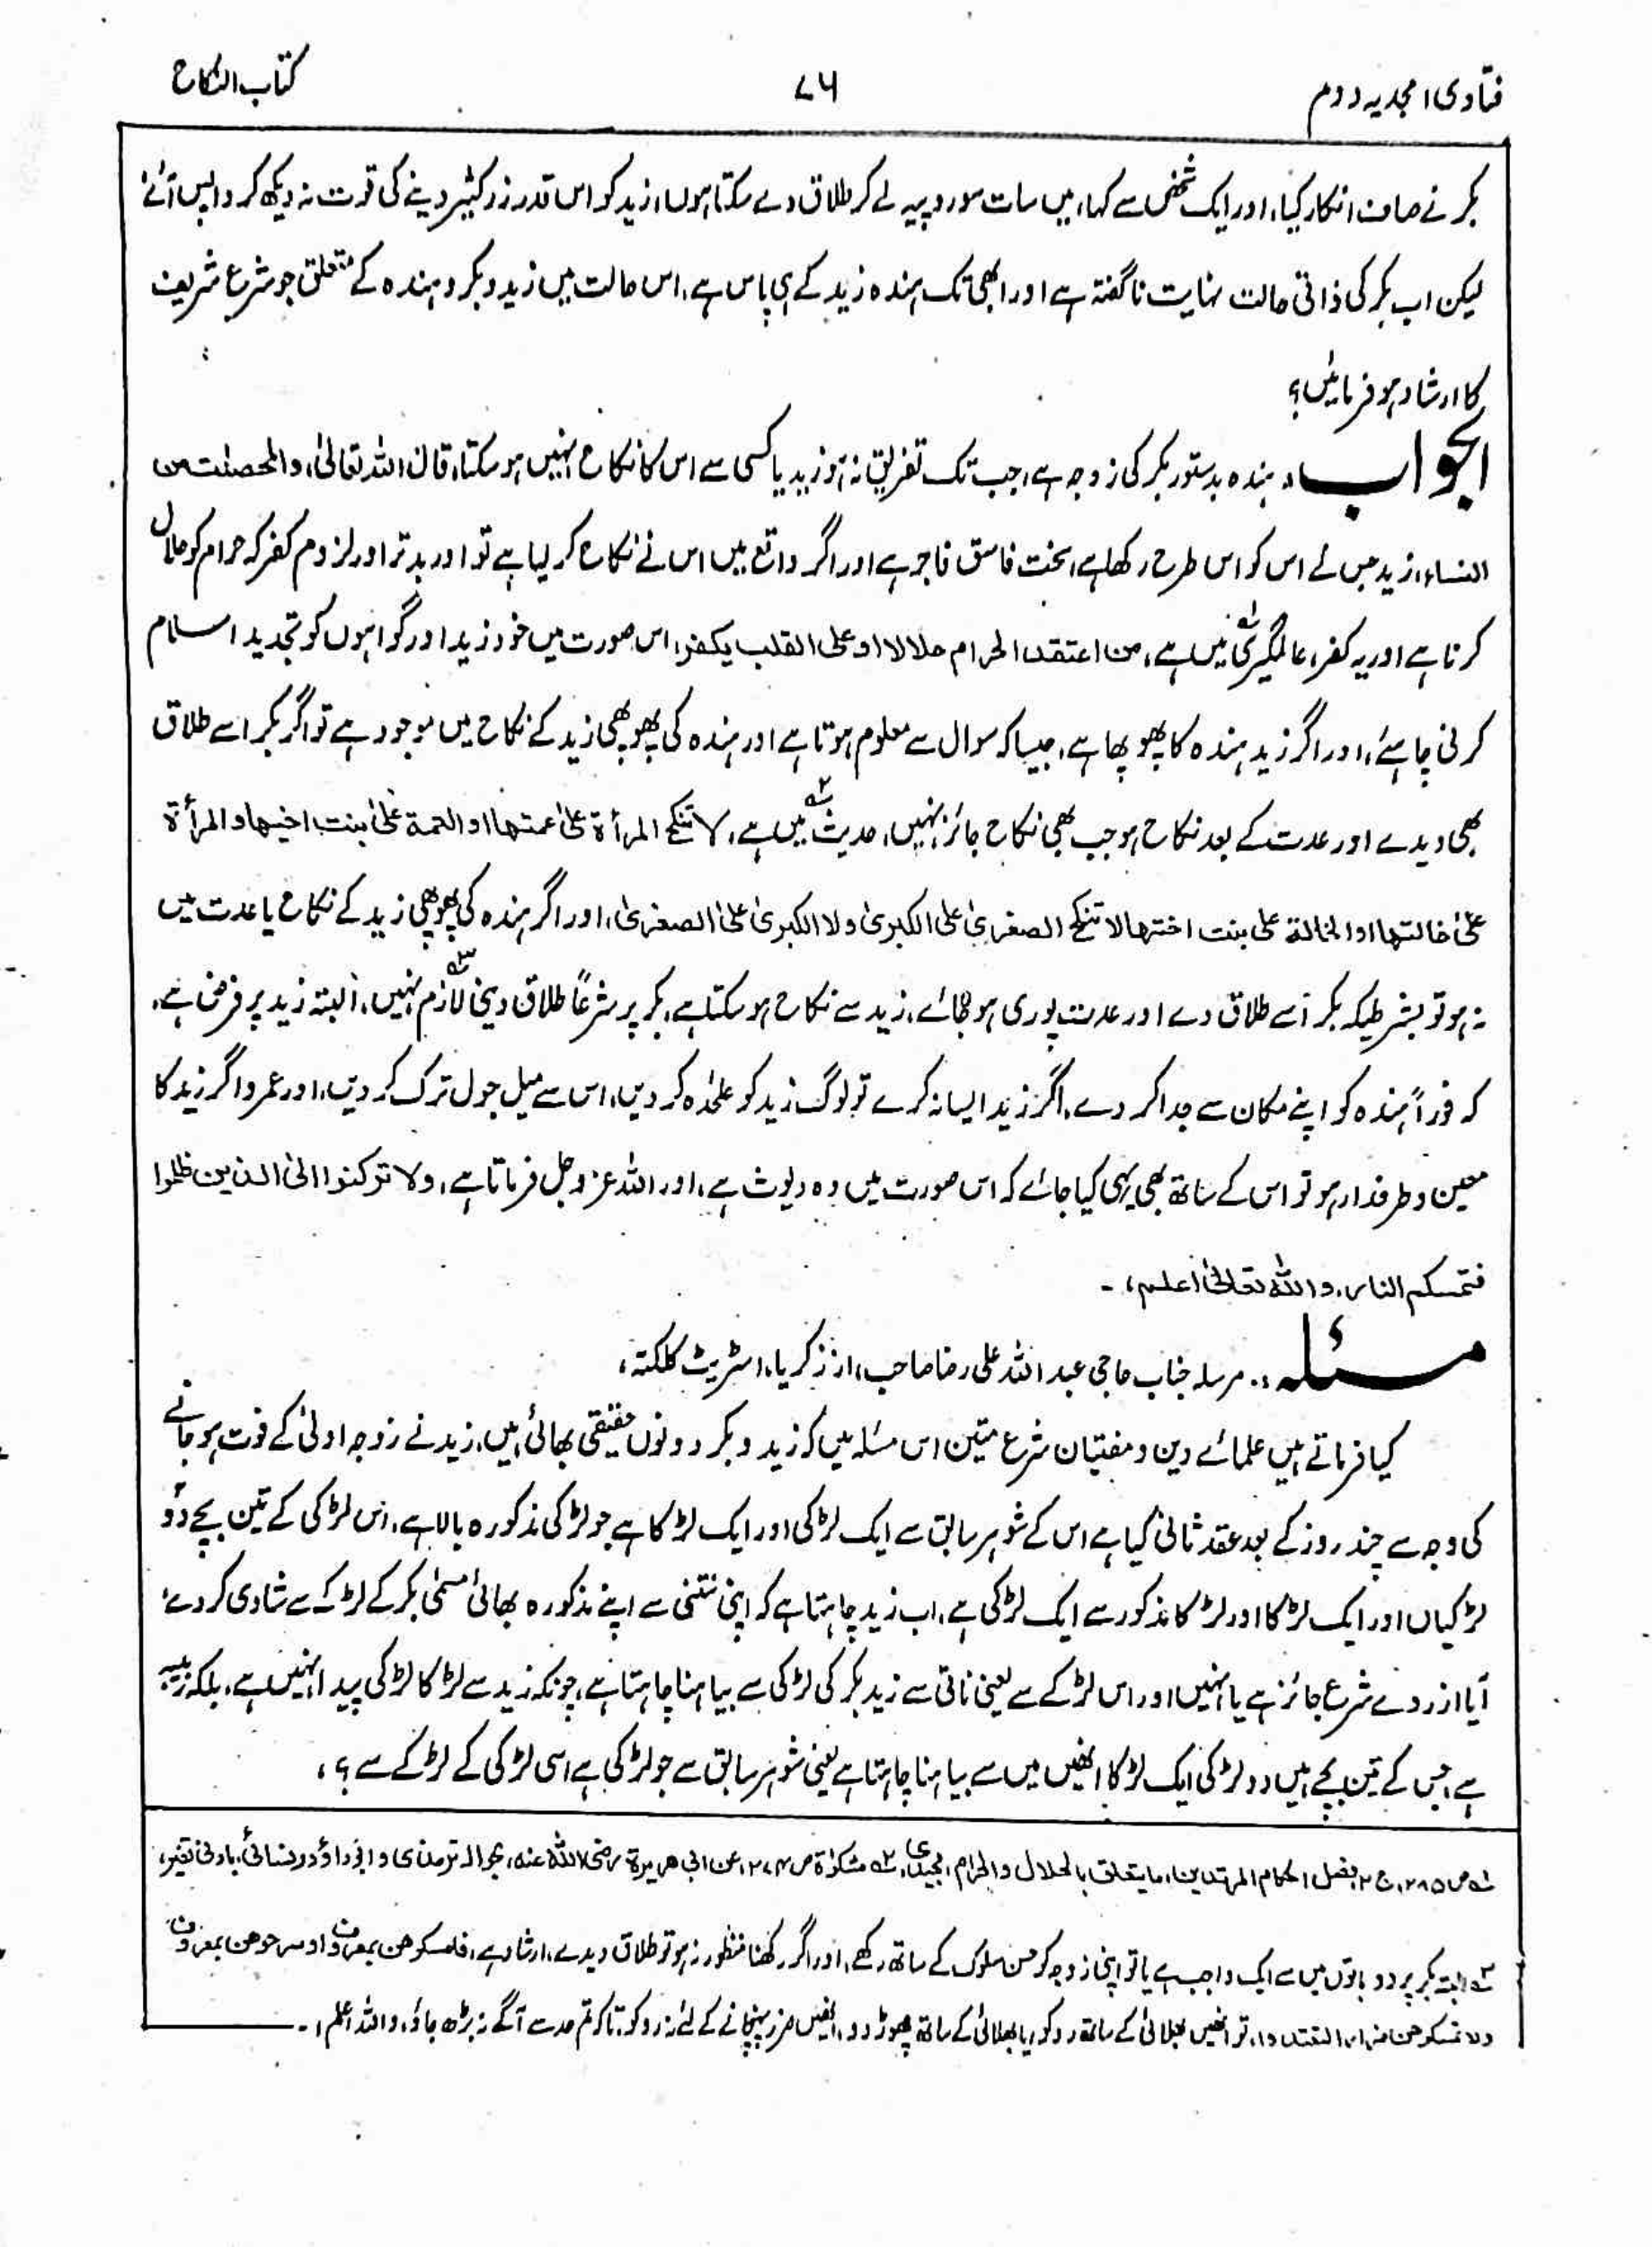 فتاوی امجدیہ دوم
۷۶
کتاب النکاح
بکر نے صاف انکار کیا، اور ایک شخص سے کہا، میں سات سو روپیہ لے کر طلاق دے سکتا ہوں، زید کو اس قدر زر کثیر دینے کی قوت نہ دیکھ کر واپس آئے
لیکن اب بکر کی ذاتی حالت نہایت ناگفتہ ہے اور ابھی تک ہندہ زید کے ہی پاس ہے، اس حالت میں زید و بکر و ہندہ کے متعلق جو شرع شریف
کا ارشاد ہو فرمائیں؟
الجواب: ہندہ بدستور بکر کی زوجہ ہے، جب تک تفریق نہ ہو زید یا کسی سے اس کا نکاح نہیں ہو سکتا، قال اللہ تعالیٰ، والمحصنٰت من
النساء، زید جس نے اس کو اس طرح رکھا ہے، سخت فاسق فاجر ہے اور اگر واقع میں اس نے نکاح کر لیا ہے تو اور بدتر اور لزوم کفر کہ حرام کو حلال
کرنا ہے اور یہ کفر، عالمگیری۱؎ میں ہے، من اعتقد الحرام حلالا او علی القلب یکفر، اس صورت میں خود زید اور گواہوں کو تجدید اسلام
کرنی چاہئے، اور اگر زید ہندہ کا پھوپھا ہے، جیسا کہ سوال سے معلوم ہوتا ہے اور ہندہ کی پھوپھی زید کے نکاح میں موجود ہے تو اگر بکر اسے طلاق
بھی دیدے اور عدت کے بعد نکاح ہو جب بھی نکاح جائز نہیں، حدیث۲؎ میں ہے، لا تنکح المرأۃ علیٰ عمتھا او العمۃ علیٰ بنت اخیھا والمرأۃ
علیٰ خالتھا او الخالۃ علی بنت اختھا لا تنکح الصغریٰ علی الکبریٰ ولا الکبریٰ علیٰ الصغریٰ، اور اگر ہندہ کی پھوپھی زید کے نکاح یا عدت میں
نہ ہو تو بشرطیکہ بکر اسے طلاق دے اور عدت پوری ہو جائے، زید سے نکاح ہو سکتا ہے، بکر پر شرعاً طلاق دینی لازم۳؎ نہیں، البتہ زید پر فرض ہے،
کہ فوراً ہندہ کو اپنے مکان سے جدا کر دے، اگر زید ایسا نہ کرے تو لوگ زید کو علٰحدہ کر دیں، اس سے میل جول ترک کر دیں، اور عمرو اگر زید کا
معین و طرفدار ہو تو اس کے ساتھ بھی یہی کیا جائے کہ اس صورت میں وہ دیوث ہے، اور اللہ عزوجل فرماتا ہے، ولا ترکنوا الیٰ الذین ظلموا
فتمسکم النار، واللہ تعالیٰ اعلم، ۔
مسئلہ: مرسلہ جناب حاجی عبداللہ علی رضا صاحب، از زکریا، اسٹریٹ کلکتہ،
کیا فرماتے ہیں علمائے دین و مفتیان شرع متین اس مسئلہ میں کہ زید و بکر دونوں حقیقی بھائی ہیں، زید نے زوجہ اولیٰ کے فوت ہو جانے
کی وجہ سے چند روز کے بعد عقد ثانی کیا ہے اس کے شوہر سابق سے ایک لڑکی اور ایک لڑکا ہے جو لڑکی مذکورہ بالا ہے، اس لڑکی کے تین بچے دو
لڑکیاں اور ایک لڑکا اور لڑکا مذکور سے ایک لڑکی ہے، اب زید چاہتا ہے کہ اپنی نتنی سے اپنے مذکورہ بھائی مسمیٰ بکر کے لڑکے سے شادی کر دے،
آیا از روے شرع جائز ہے یا نہیں اور اس لڑکے سے یعنی ناتی سے زید بکر کی لڑکی سے بیاہنا چاہتا ہے، چونکہ زید سے لڑکا لڑکی پیدا نہیں ہے، بلکہ ربیبہ
ہے، جس کے تین بچے ہیں دو لڑکی ایک لڑکا انھیں میں سے بیاہنا چاہتا ہے یعنی شوہر سابق سے جو لڑکی ہے اسی لڑکی کے لڑکے سے؟،
۱؎ ص ۲۸۵، ج ۲، فصل احکام المرتدین، ما یتعلق بالحلال والحرام، مجیدی، ۲؎ مشکوٰۃ ص ۲۷۴، عن ابی ھریرۃ رضی اللہ عنہ، بحوالہ ترمذی و ابوداؤد و نسائی، بادنیٰ تغیر،
۳؎ البتہ بکر پر دو باتوں میں سے ایک واجب ہے یا تو اپنی زوجہ کو حسن سلوک کے ساتھ رکھے، اور اگر رکھنا منظور نہ ہو تو طلاق دیدے، ارشاد ہے، فامسکوھن بمعروف او سرحوھن بمعروف
ولا تمسکوھن ضرارا لتعتدوا، تو انھیں بھلائی کے ساتھ روکو، یا بھلائی کے ساتھ چھوڑ دو، انھیں ضرر پہنچانے کے لئے نہ روکو، تاکہ تم حد سے آگے نہ بڑھ جاؤ، واللہ اعلم، ۔